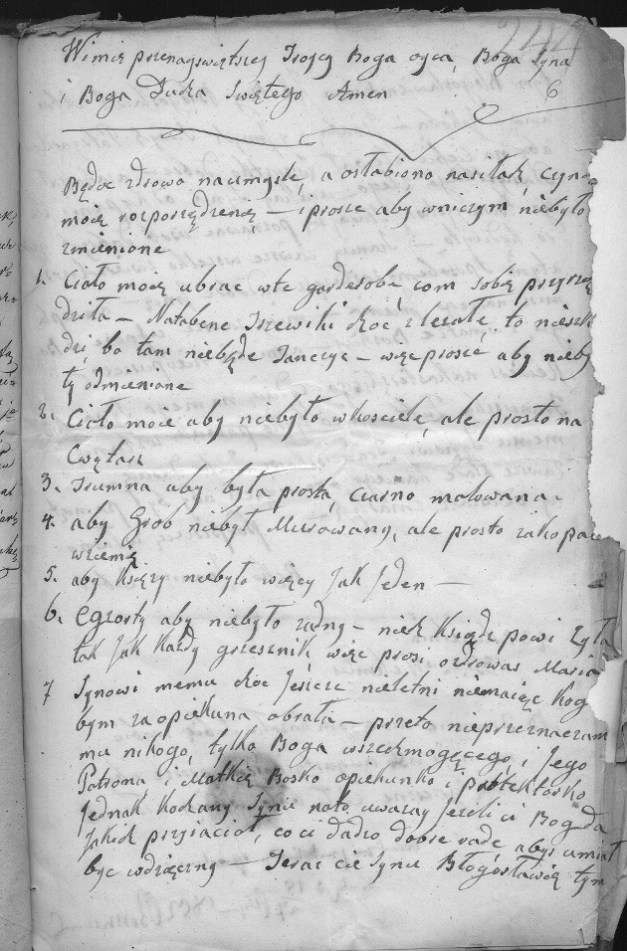 244
W imie przenagswiętszej Trojcy Boga oyca, Boga Syna
i Boga Ducha Swiętego Amen 6
Będoc zdrowo na umysle, a osłabiono na siłah, czyno
moię rozporzędzenię – i prosze aby w niczym niebyło
zmienione
1. Ciało moię ubrac w te garderobe, com sobię przyrzą
dziła – Notabene Trzewiki hoc zlezałe, to nieszk
dzi, bo tam niebęde Tanczyc – więc prosze aby nieby
ły odmienione
2. Ciało moie aby niebyło w kosciele, ale prosto na
Cwętasz
3. Trumna aby była prosta, czarno malowana.
4. aby Grób niebył Murowany, ale prosto zakopac
w ziemię
5. aby Księży niebyło więcy Jak Jeden –
6. Egzorty aby niebyło zadny – niech Ksiądz powi Zyła
tak Jak Kazdy grzesznik więc prosi o zdrowas Maria
7 Synowi memu choc Jeszcze nieletni niemaięc Kog
bym za opiekuna obrała – przeto nieprzeznaczam
mu nikogo, tylko Boga wszechmogęcego, i Jego
Patrona i Matkię Bosko opiekunko i protektorko
Jednak Kochany Synu nato uwazay Jezili ci Bog da
Jakich przyiacioł, co ci dadzo dobre rade, abys umiał
byc wdzięczny – Teraz cie Synu Błogosławię tym